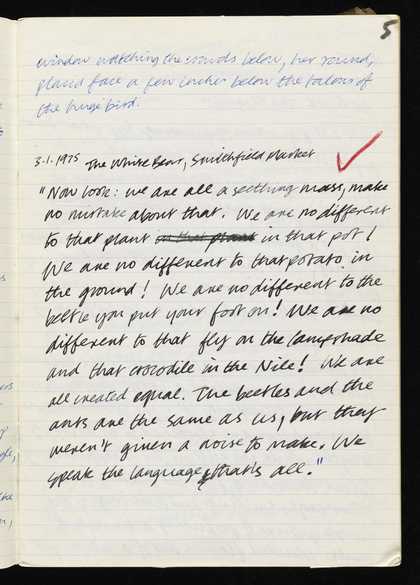 5
window watching the crowds below, her round,
placid face a few inches below the talons of
the huge bird.
3-1-1975 The White Bear, Smithfield Market
"Now look: we are all a seething mass, make
no mistake about that. We are no different
to that plant on that plant in that pot!
We are no different to that potato in
the ground! We are no different to the
beetle you put your foot on! We are no
different to that fly on the lampshade
and that crocodile in the Nile! We are
all created equal. The beetles and the
ants are the same as us, but they
weren't given a noise to make. We
speak the language, that's all."